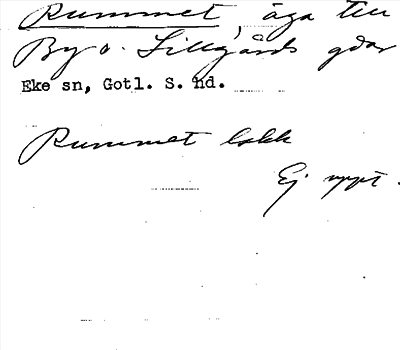 Rummet, äga till
By o. Lillgårds gdar
Eke sn, Gotl. S. hd.
Rummet lskk
Ej uppt.